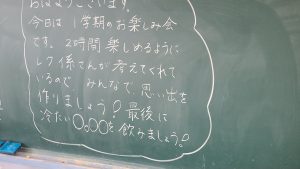 おはようございます。
今日は1学期のお楽しみ会
です。2時間楽しめるように
レク係さんが考えてくれて
いるので、みんなで、思い出を
作りましょう！最後に
冷たい〇〇〇〇を飲みましょう！